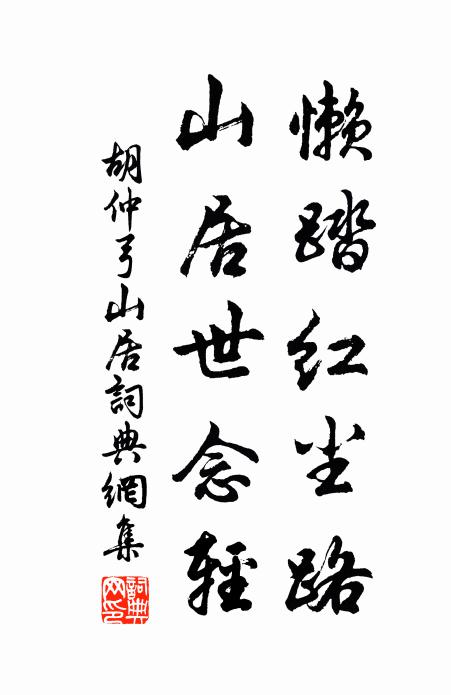 懒踏红尘路
山居世念輕
胡仲弓山居詞典網集
詞典网印